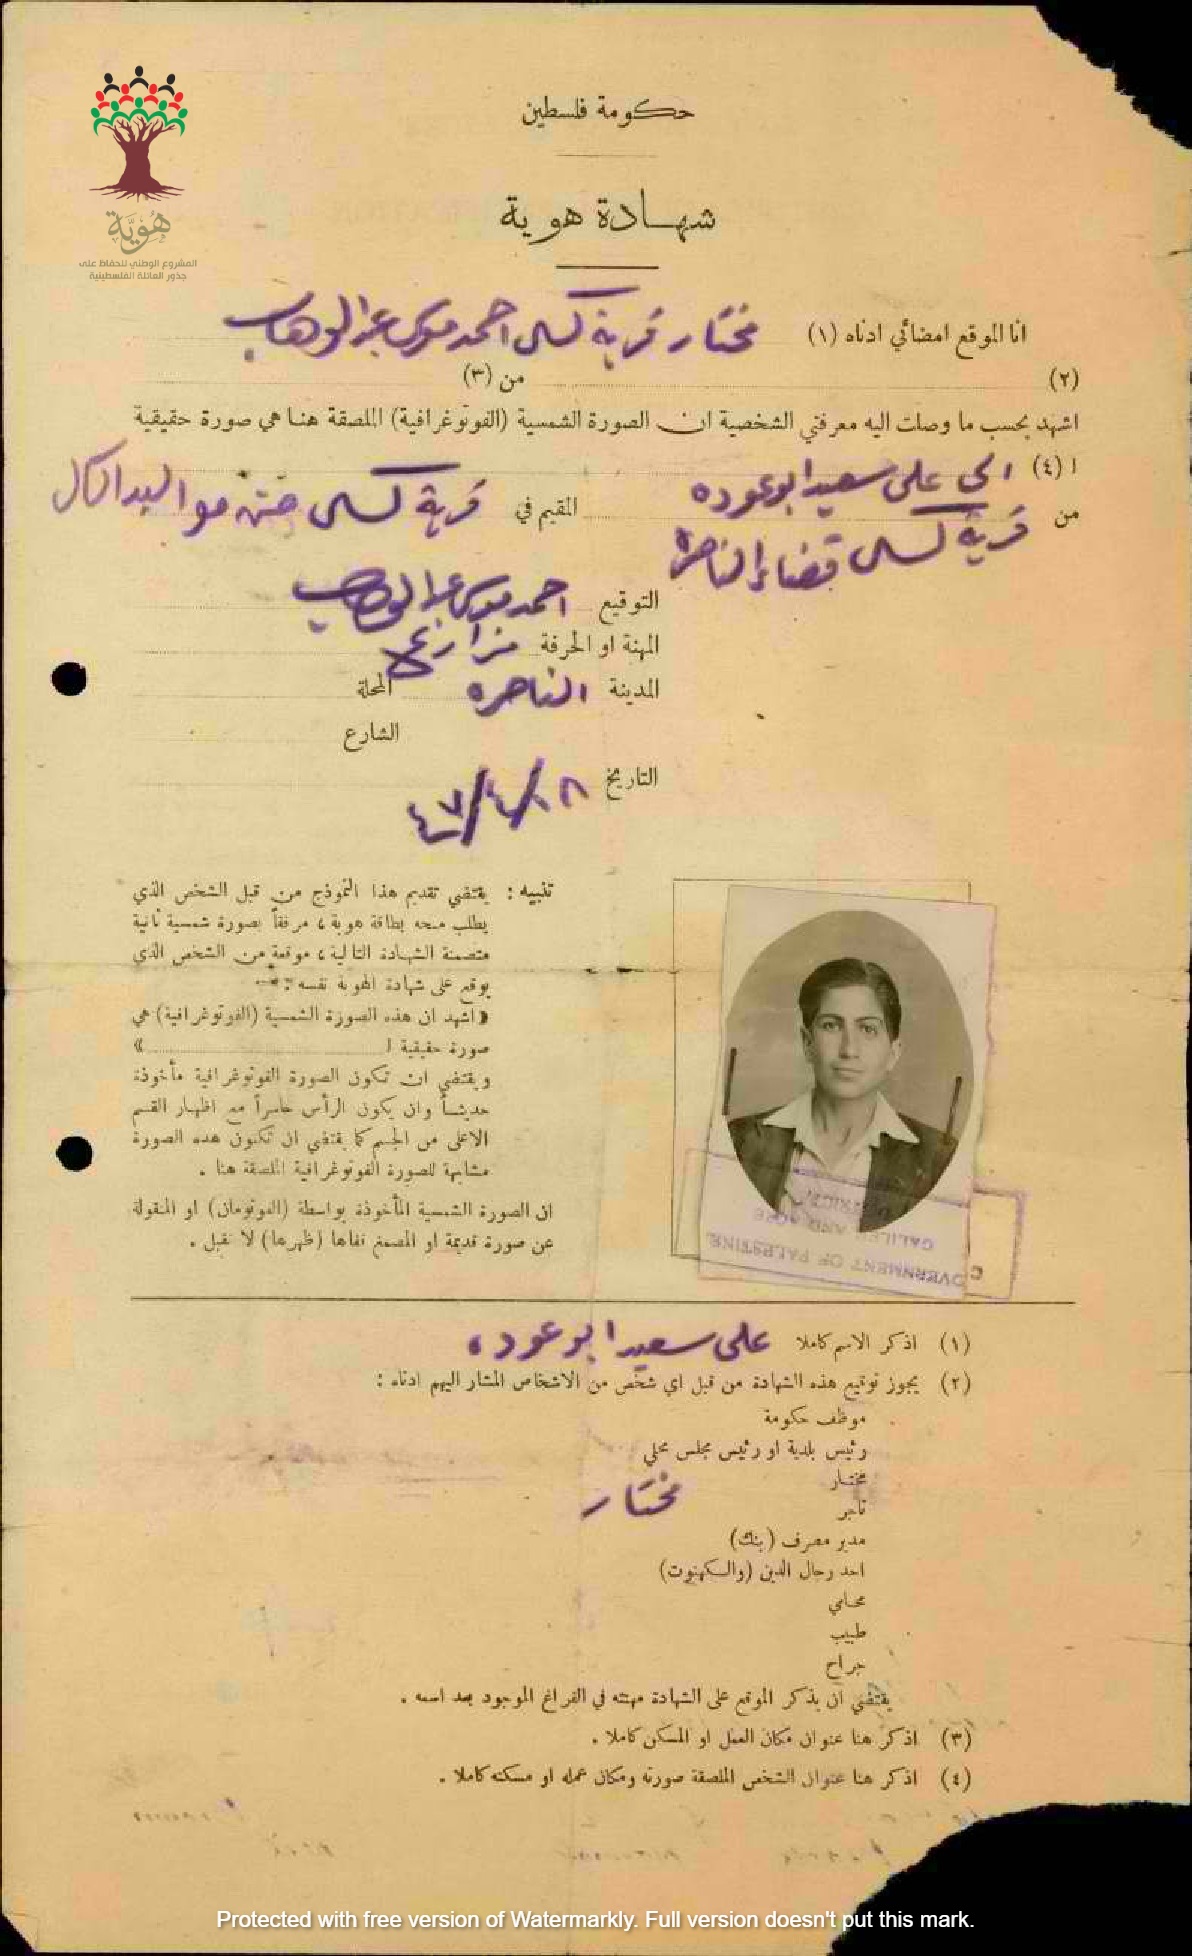 هُوِيَّة
المشروع الوطني للحفاظ على
جذور العائلة الفلسطينية
حكومة فلسطين
شهادة هوية
انا الموقع امضائي ادناه (١) مختار قرية اكسال احمد موسى عبد الوهاب
(٢) من (٣)
اشهد بحسب ما وصلت اليه معرفتي الشخصية ان الصورة الشمسية (الفوتوغرافية) الملصقة هنا هي صورة حقيقية
ا (٤) الى علي سعيد ابو عوده
من قرية اكسال قضاء الناصرة المقيم في قرية اكسال
التوقيع احمد موسى عبد الوهاب
المهنة او الحرفة مزارع
المدينة الناصره المحلة
الشارع
التاريخ
تنبيه : يقتضي تقديم هذا النموذج من قبل الشخص الذي
يطلب منحه بطاقة هوية ، مرفقاً بصورة شمسية ثانية
متضمنة الشهادة التالية ، موقعة من الشخص الذي
يوقع على شهادة الهوية نفسه :—
«اشهد ان هذه الصورة الشمسية (الفوتوغرافية) هي
صورة حقيقية ا »
ويقتضي ان تكون الصورة الفوتوغرافية مأخوذة
حديثاً وان يكون الرأس حاسراً مع اظهار القسم
الاعلى من الجسم كما يقتضي ان تكون هذه الصورة
مشابهة للصورة الفوتوغرافية الملصقة هنا .
ان الصورة الشمسية المأخوذة بواسطة (الفوتومان) او المنقولة
عن صورة قديمة او المصمغ قفاها (ظهرها) لا تقبل .
GOVERNMENT OF PALESTINE
GALILEE AND ACRE
DISTRICT
(١) اذكر الاسم كاملا علي سعيد ابو عوده
(٢) يجوز توقيع هذه الشهادة من قبل اي شخص من الاشخاص المشار اليهم ادناه :
موظف حكومة
رئيس بلدية او رئيس مجلس محلي
مختار
مختار
تاجر
مدير مصرف (بنك)
احد رجال الدين (والكهنوت)
محامي
طبيب
جراح
يقتضي ان يذكر الموقع على الشهادة مهنته في الفراغ الموجود بعد اسمه .
(٣) اذكر هنا عنوان مكان العمل او المسكن كاملا .
(٤) اذكر هنا عنوان الشخص الملصقة صورته ومكان عمله او مسكنه كاملا .
Protected with free version of Watermarkly. Full version doesn't put this mark.